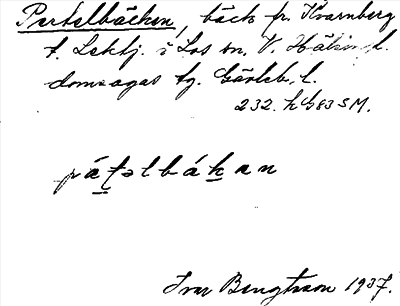 Pertelbäcken, bäck fr. Kvarnberg
t. Lektj. i Los sn, V. Hälsingl.
domsagas tg. Gävleb. l.
232. h 683 SM.
pá̱t̲əlbák̲an
Ivar Bengtsson 1937.